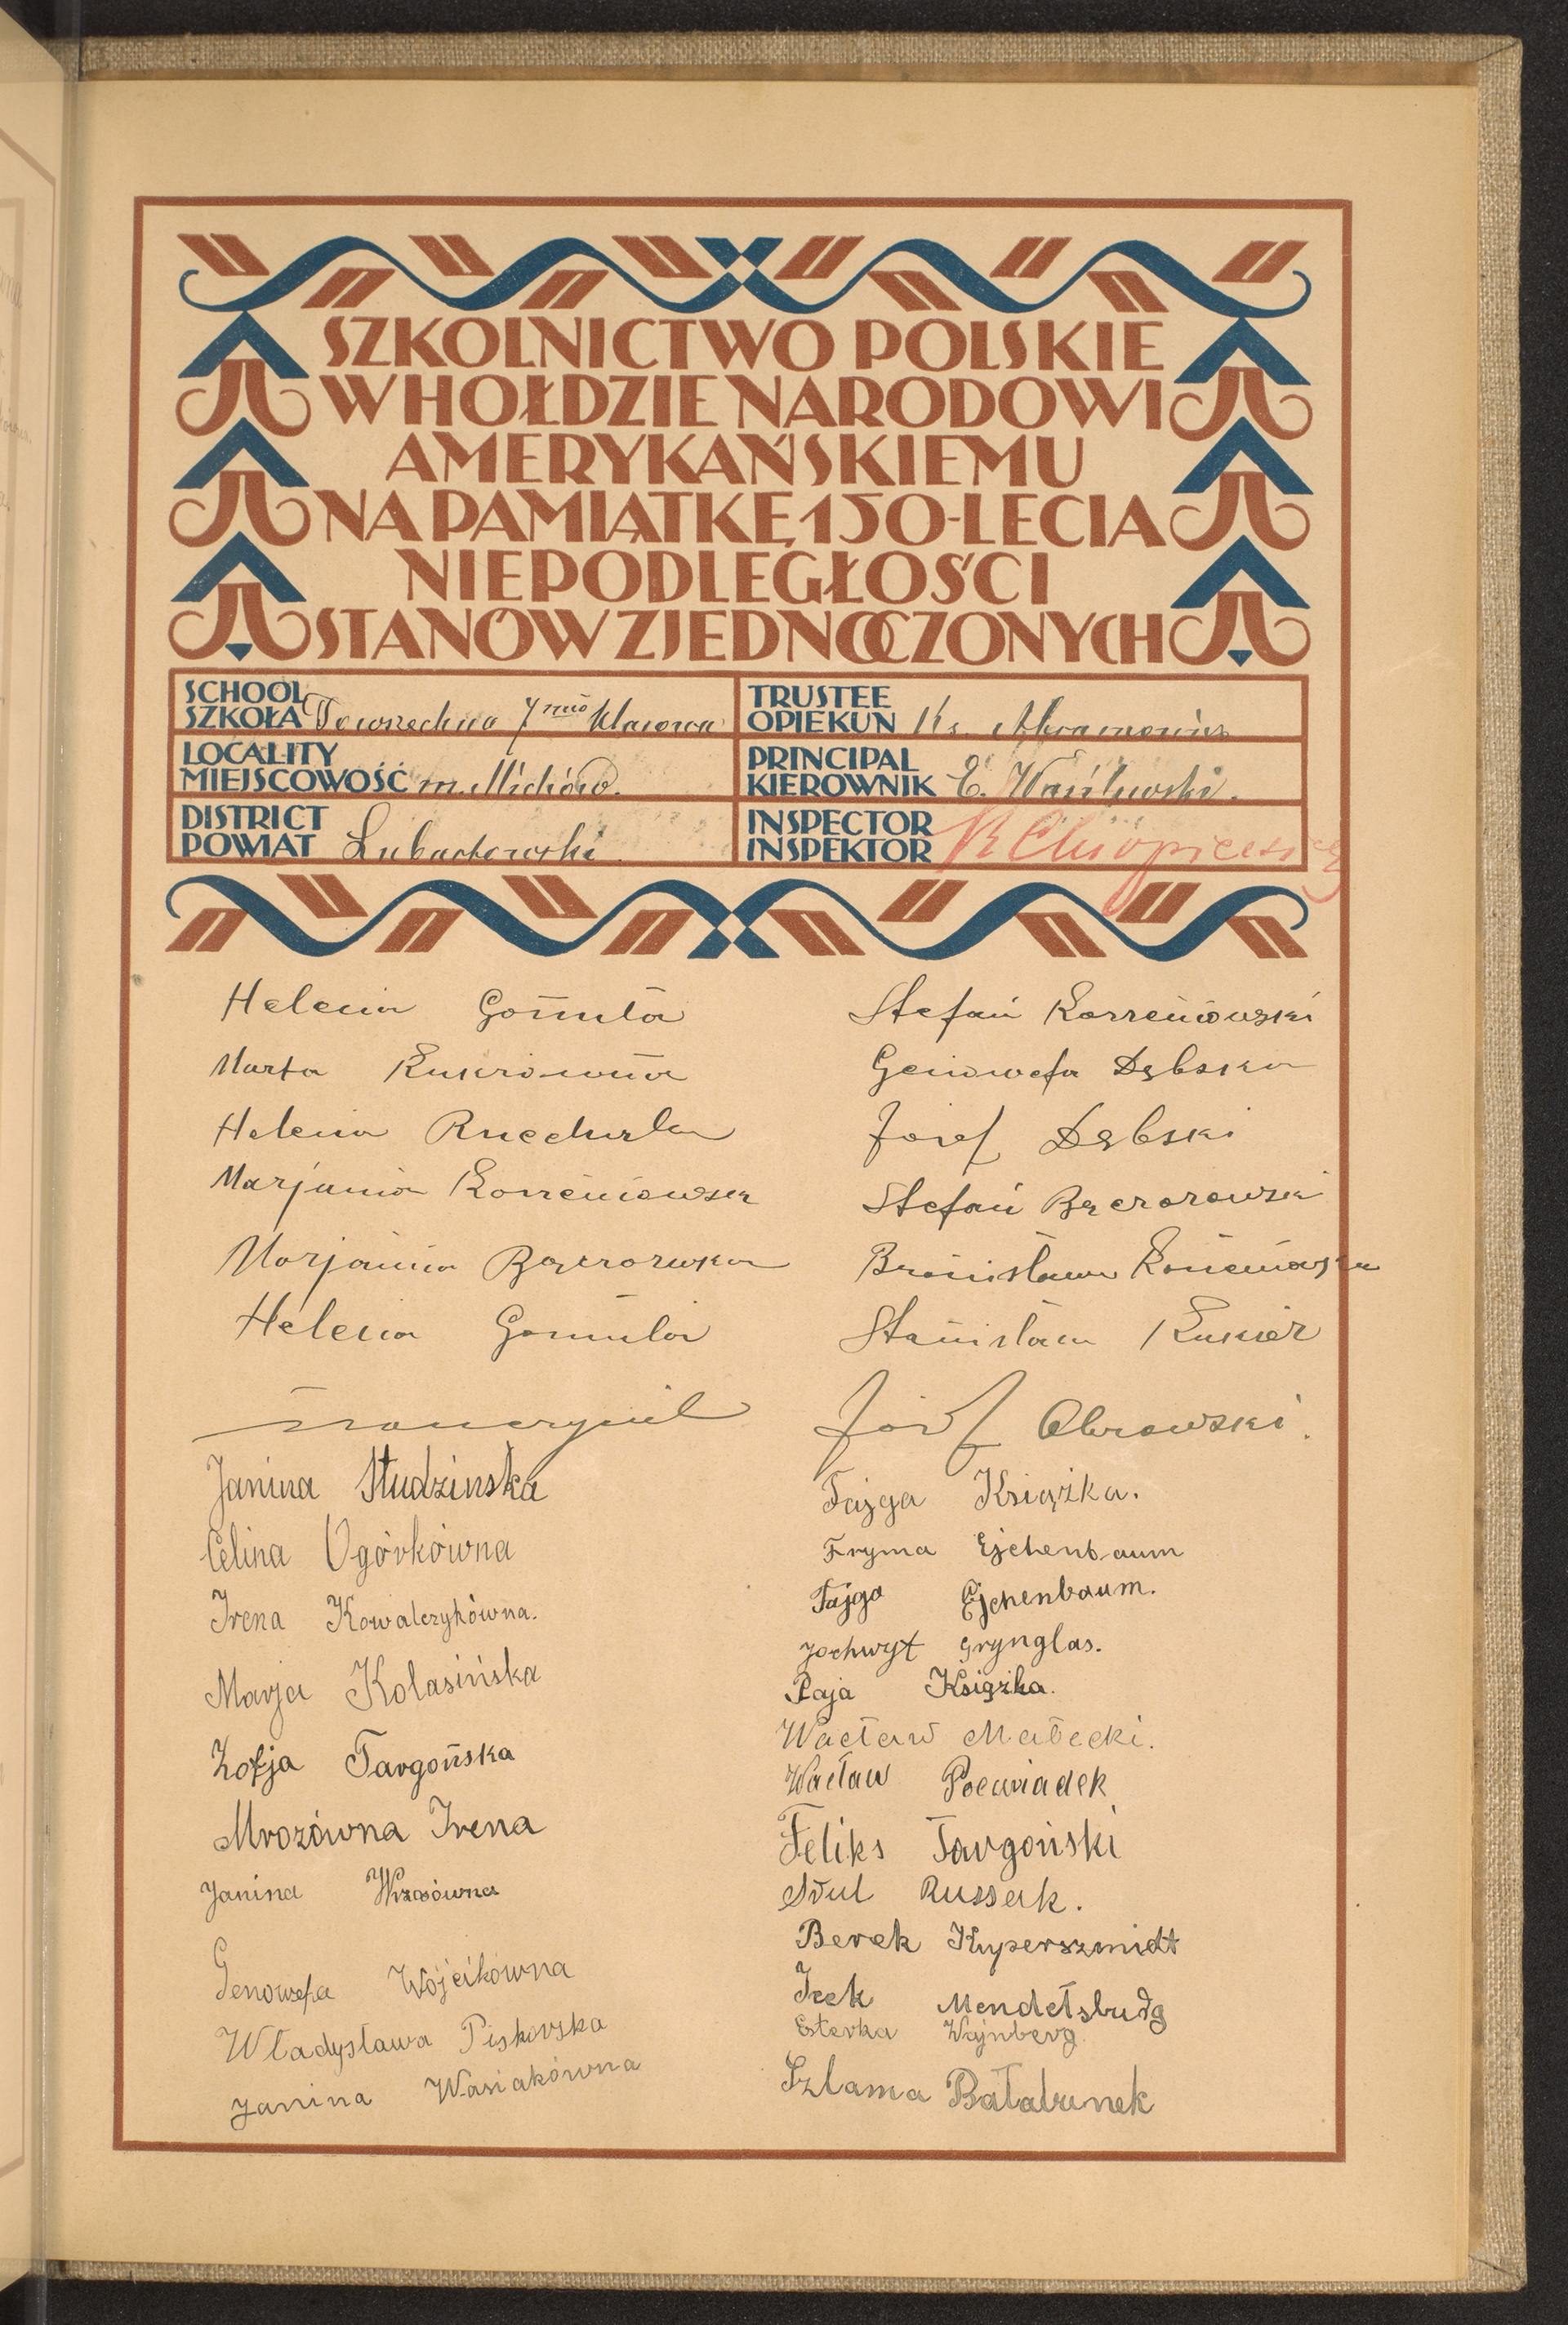 SZKOLNICTWO POLSKIE
W HOŁDZIE NARODOWI
AMERYKAŃSKIEMU
NA PAMIĄTKĘ 150-LECIA
NIEPODLEGŁOŚCI
STANÓW ZJEDNOCZONYCH
SCHOOL
SZKOŁA Powszechna 7mio klasowa
TRUSTEE
OPIEKUN Ks. Abramowicz
LOCALITY
MIEJSCOWOŚĆ m. Michów.
PRINCIPAL
KIEROWNIK E.
DISTRICT
POWIAT Lubartowski
INSPECTOR
INSPEKTOR
Helena Gomuła
Marta
Helena
Marjanna Korzeniowska
Marjanna
Helena Gomuła
Janina Studzinska
Celina Ogórkówna
Irena Kowalczykówna.
Marja Kolasińska
Zofja Targońska
Mrozówna Irena
Janina Wrzosówna
Genowefa Wójcikówna
Władysława Piskorska
Janina Wasiakówna
Stefan Korzeniowski
Genowefa Dębska
Józef Dębski
Stefan
Bronisława
Stanisław Kukier
Józef
Fajga Książka.
Fryma Ejchenbaum
Fajga Ejchenbaum.
Jochwyt Grynglas.
Paja Książka.
Wacław Małecki.
Wacław Poewiadek
Feliks Targoński
Srul Russak.
Berek Kuperszmidt
Icek Mendelsburg
Esterka Wajnberg.
Szlama Bałabunek